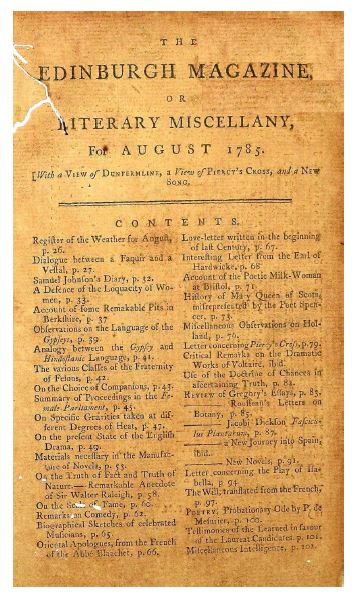 THE
EDINBURGH MAGAZINE,
OR
LITERARY MISCELLANY,
For AUGUST 1785.
[With a View of DUNFERMLINE, a View of PIERCY's CROSS, and a NEW
SONG.
CONTENTS.
Register of the Weather for August,
p. 26.
Dialogue between a Faquir and a
Vestal, p. 27.
Samuel Johnson's Diary, p. 32.
A Defence of the Loquacity of Wo-
men, p. 33.
Account of some Remarkable Pits in
Berkshire, p. 37
Observations on the Language of the
Gypseys, p. 39
Analogy between the Gypsey and
Hindostanic Language, p. 41.
The various Classes of the Fraternity
of Felons, p. 42.
On the Choice of Companions, p. 43.
Summary of Proceedings in the Fe-
male Parliament, p. 45.
On Specific Gravities taken at dif-
ferent Degrees of Heat, p. 47.
On the present State of the English
Drama, p. 49.
Materials necessary in the Manufac-
ture of Novels, p. 53.
On the Truth of Fact and Truth of
Nature.—Remarkable Anecdote
of Sir Walter Raleigh, p. 58.
On the of Fame, p. 60.
Remarks on Comedy, p. 62.
Biographical Sketches of celebrated
Musicians, p. 65.
Oriental Apologues, from the French
of the Abbé Blanchet, p. 66.
Love-letter written in the beginning
of last Century, p. 67.
Interesting Letter from the Earl of
Hardwicke, p. 68
Account of the Poetic Milk-Woman
at Bristol, p. 71.
History of Mary Queen of Scots,
misrepresented by the Poet Spen-
cer, p. 73.
Miscellaneous Observations on Hol-
land, p. 76.
Letter concerning Piercy's Cross, p. 79.
Critical Remarks on the Dramatic
Works of Voltaire, ibid.
Use of the Doctrine of Chances in
ascertaining Truth, p. 82.
REVIEW of Gregory's Essays, p. 83.
— Rousseau's Letters on
Botany, p. 85.
— Jacobi Dickson Fascicu-
lus Plantarum, p. 87.
— a New Journey into Spain,
ibid.
— New Novels, p. 91.
Letter concerning the Play of Isa-
bella, p. 94
The Will, translated from the French,
p. 97.
POETRY. Probationary Ode by P. de
Mesurier, p. 100.
Testimonies of the Learned in favour
of the Laureat Candidates, p. 101.
Miscellaneous Intelligence, p. 102.